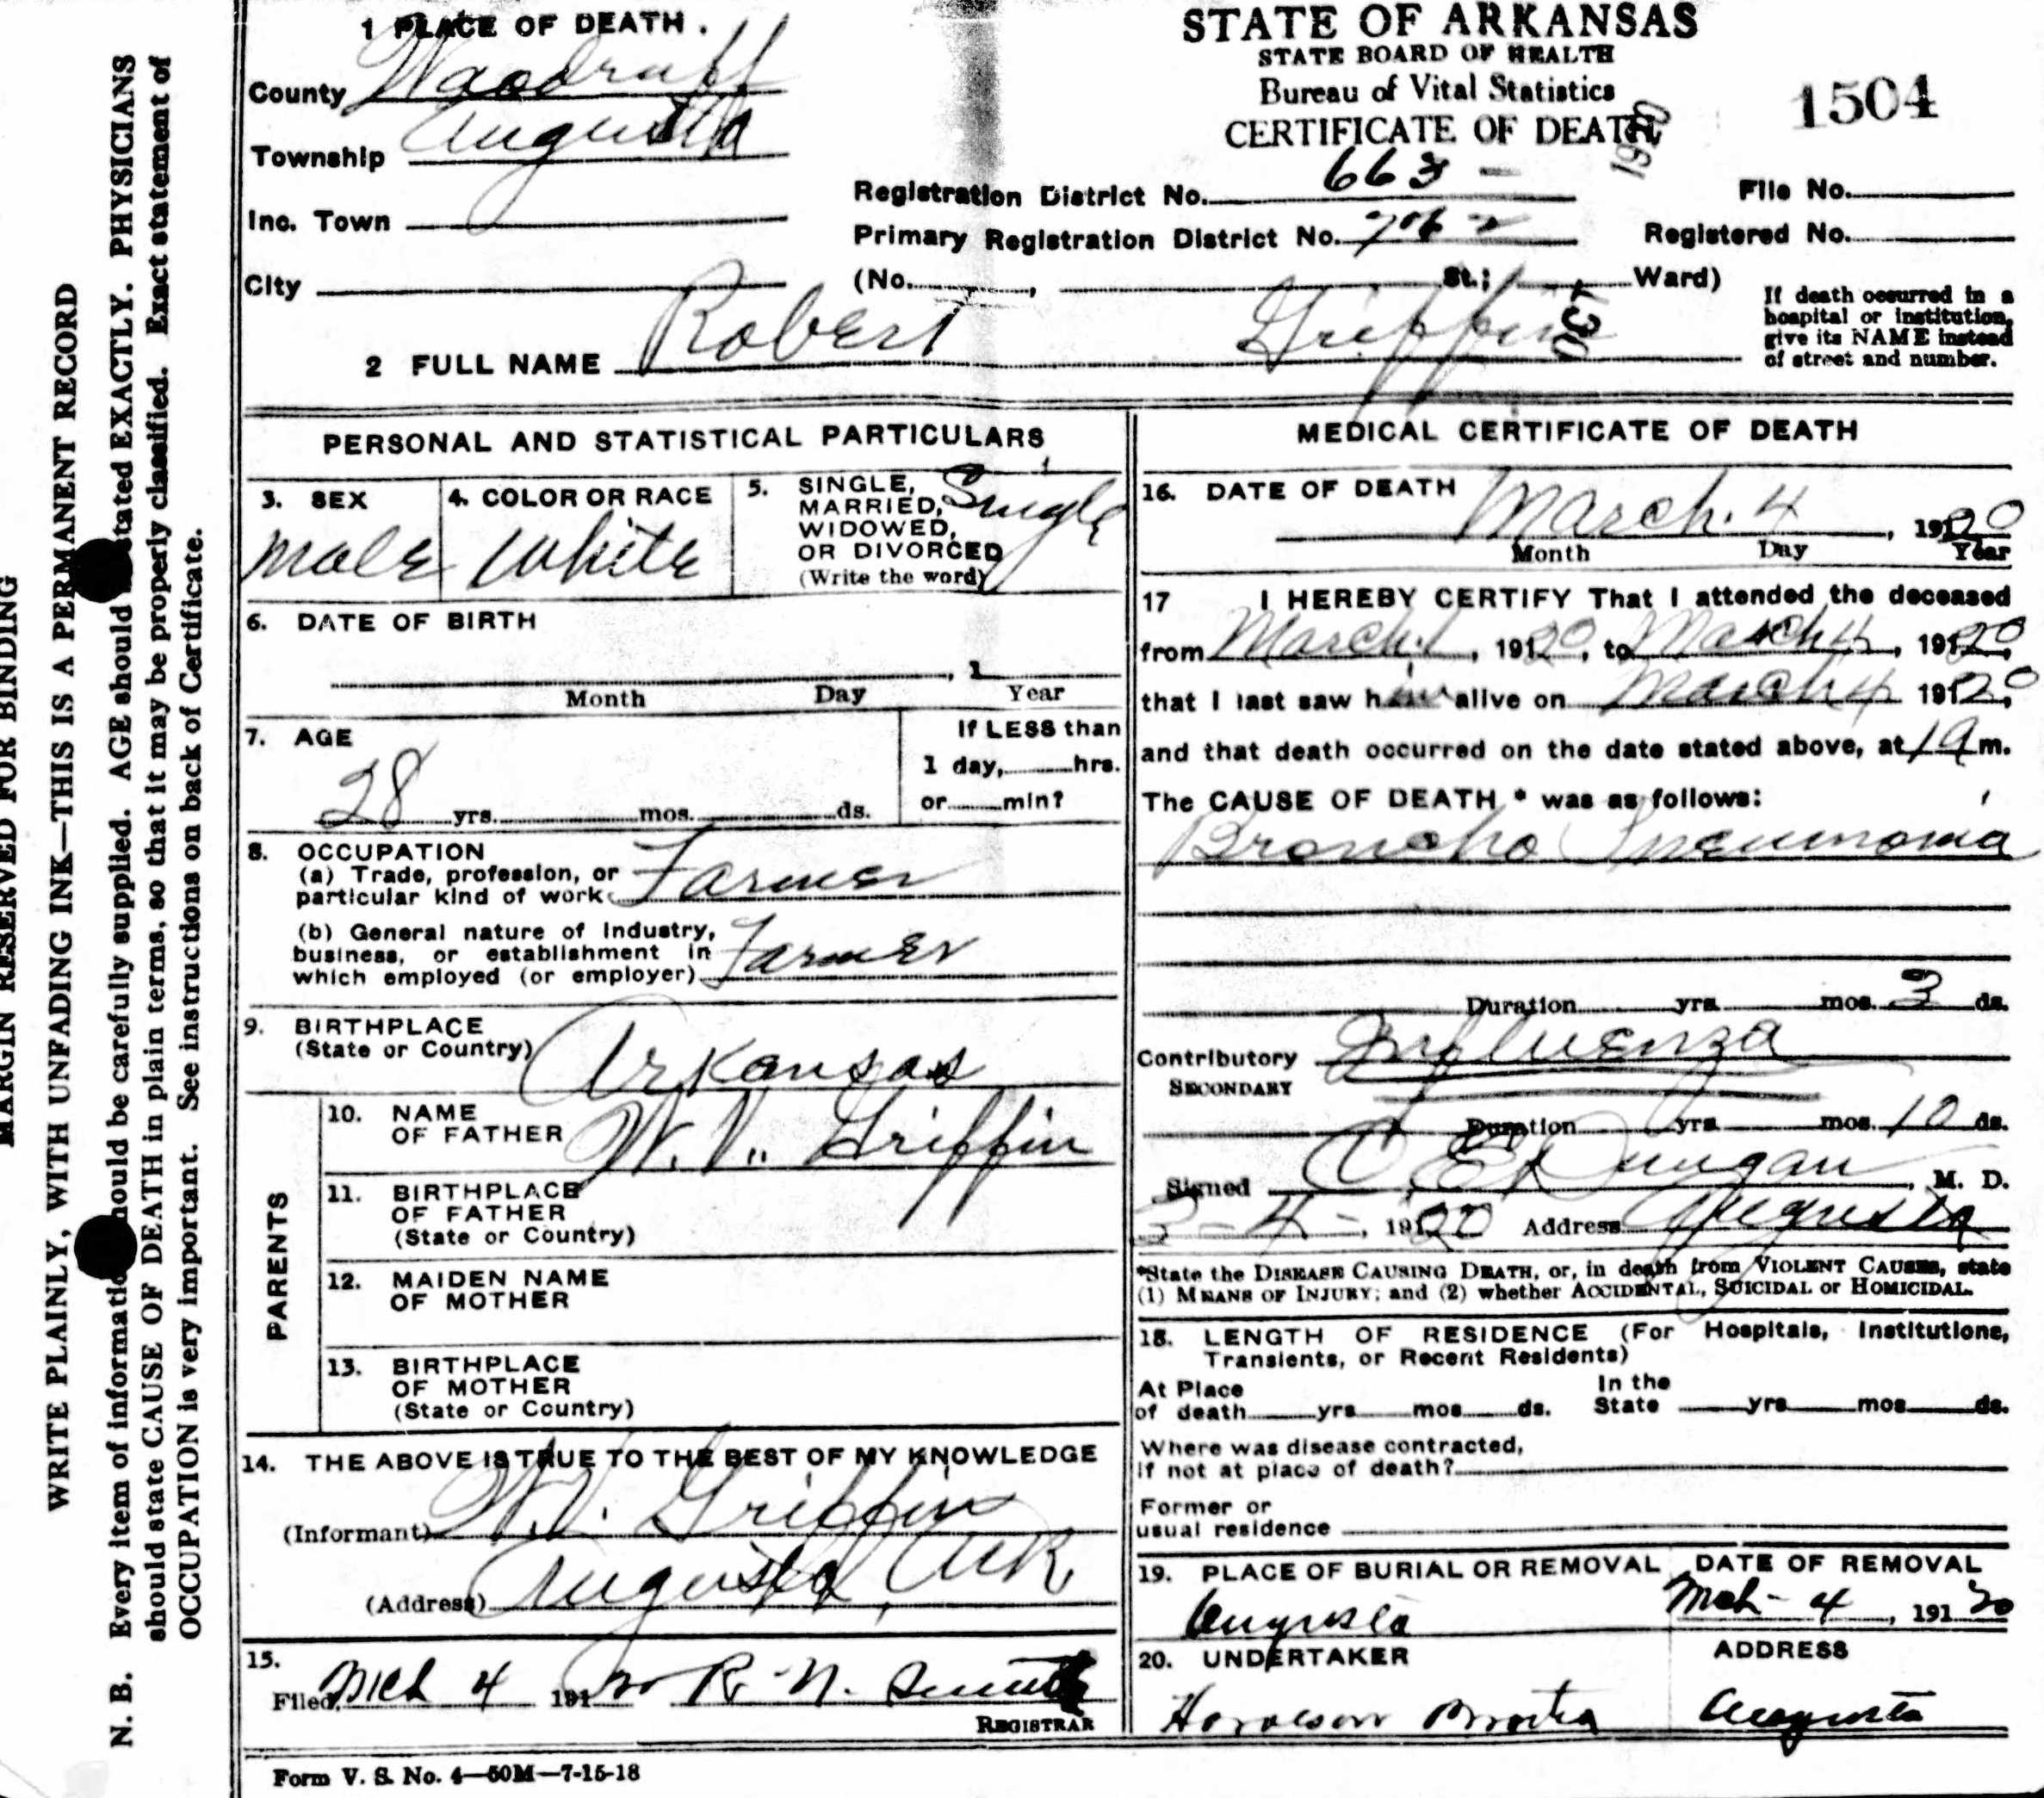 MARGIN RESERVED FOR BINDING
WRITE PLAINLY, WITH UNFADING INK—THIS IS A PERMANENT RECORD
N. B. Every item of informatio hould be carefully supplied. AGE should stated EXACTLY. PHYSICIANS
should state CAUSE OF DEATH in plain terms, so that it may be properly classified. Exact statement of
OCCUPATION is very important. See instructions on back of Certificate.
1 PLACE OF DEATH.
County Woodruff
Township Augusta
Inc. Town
City
STATE OF ARKANSAS
STATE BOARD OF HEALTH
Bureau of Vital Statistics
CERTIFICATE OF DEATH
1920
1504
Registration District No. 663 -
File No.
Primary Registration District No.
Registered No.
(No. , St.; Ward)
OCT 30
If death occurred in a
hospital or institution,
give its NAME instead
of street and number.
2 FULL NAME Robert Griffin
PERSONAL AND STATISTICAL PARTICULARS
3. SEX
Male
4. COLOR OR RACE
White
5. SINGLE,
MARRIED,
WIDOWED,
OR DIVORCED
(Write the word)
Single
6. DATE OF BIRTH
, 1
Month Day Year
7. AGE
28 yrs. mos. ds.
If LESS than
1 day, hrs.
or min?
8. OCCUPATION
(a) Trade, profession, or
particular kind of work Farmer
(b) General nature of Industry,
business, or establishment in
which employed (or employer) Farmer
9. BIRTHPLACE
(State or Country) Arkansas
PARENTS
10. NAME
OF FATHER W. V. Griffin
11. BIRTHPLACE
OF FATHER
(State or Country)
12. MAIDEN NAME
OF MOTHER
13. BIRTHPLACE
OF MOTHER
(State or Country)
14. THE ABOVE IS TRUE TO THE BEST OF MY KNOWLEDGE
(Informant) W. V. Griffin
(Address) Augusta, Ark
15.
Filed, Mch 4 1920 R. N. Smith
REGISTRAR
Form V. S. No. 4—50M—7-15-18
MEDICAL CERTIFICATE OF DEATH
16. DATE OF DEATH March. 4, 1920
Month Day Year
17 I HEREBY CERTIFY That I attended the deceased
from March. 1, 1920, to March 4, 1920,
that I last saw him alive on March 4 1920,
and that death occurred on the date stated above, at m.
The CAUSE OF DEATH * was as follows:
Broncho Pneumonia
Duration yrs. mos. 3 ds.
Contributory Influenza
SECONDARY
Duration yrs. mos. 10 ds.
Signed C E Dungan, M. D.
3-4-, 1920 Address Augusta
*State the DISEASE CAUSING DEATH, or, in death from VIOLENT CAUSES, state
(1) MEANS OF INJURY; and (2) whether ACCIDENTAL, SUICIDAL or HOMICIDAL.
18. LENGTH OF RESIDENCE (For Hospitals, Institutions,
Transients, or Recent Residents)
At Place
of death yrs. mos. ds.
In the
State yrs. mos. ds.
Where was disease contracted,
If not at place of death?
Former or
usual residence
19. PLACE OF BURIAL OR REMOVAL
Augusta
DATE OF REMOVAL
Mch - 4, 1920
20. UNDERTAKER
ADDRESS
Augusta